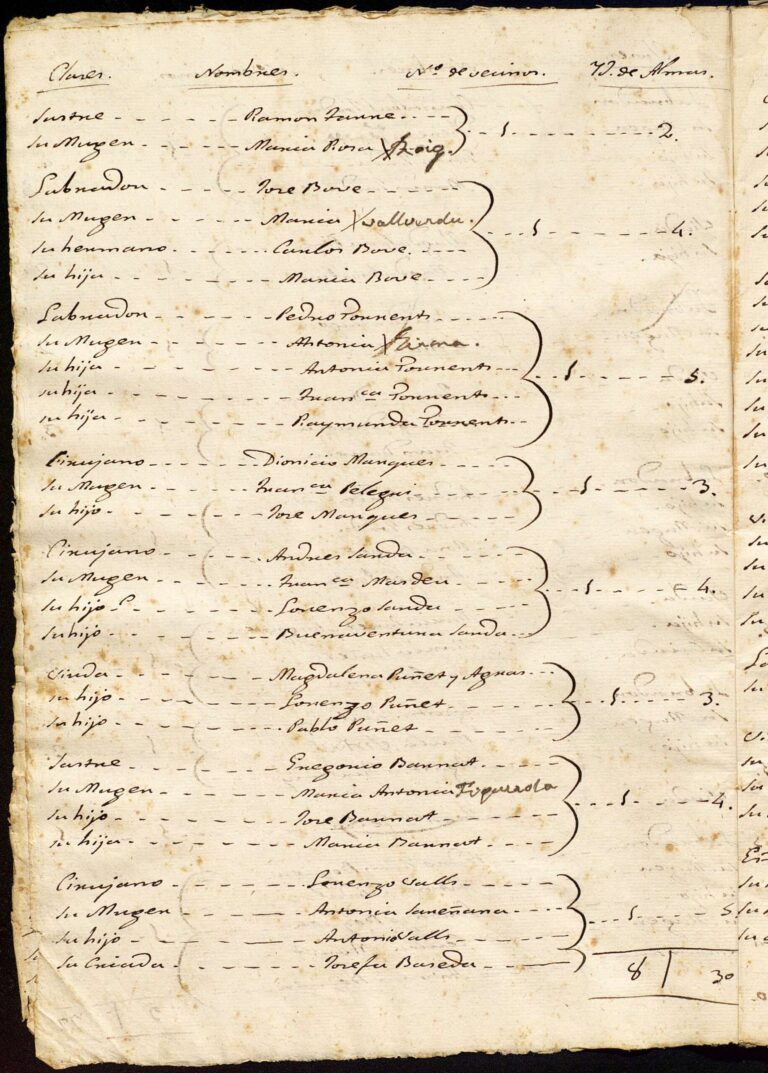 Clases. Nombres. Nº de vecinos. Yd. de Almas.
Sastre - - - - - Ramon Farre - -
su Muger - - - - Maria Rosa Roig. 1 - - - - 2.
Labrador - - - - Jose Bove - - -
su Muger - - - - Maria Vallverdu. 1 - - - - 4.
su hermano - - - Carlos Bove. - -
su hija - - - - Maria Bove - - -
Labrador - - - - Pedro Torrents
su Muger - - - - Antonia
su hija - - - - Antonia Torrents - - 1 - - - - 5.
su hija - - - - Franca Torrents
su hija - - - - Raymunda Torrents
Cirujano - - - - Dionicio Marques - - -
su Muger - - - - Franca Pelegri - - - 1 - - - - 3.
su hijo - - - - Jose Marques - - -
Cirujano - - - - Andres Sarda - - -
su Muger - - - - Franca Masdeu - - - 1 - - - - 4.
su hijo - - - - Lorenzo Sarda - - -
su hijo - - - - Buenaventura Sarda - -
Viuda - - - - Magdalena Puñet y Agras - - -
su hijo - - - - Lorenzo Puñet - - - 1 - - - - 3.
su hijo - - - - Pablo Puñet - - -
Sastre - - - - Gregorio Barrat - - -
su Muger - - - - Maria Antonia Figuerola
su hijo - - - - Jose Barrat - - - 1 - - - - 4.
su hija - - - - Maria Barrat - - -
Cirujano - - - - Lorenzo Valls - - -
su Muger - - - - Antonia Sareñana - - - 1 - - - - 5
su hijo - - - - Antonio Valls - - -
su Criada - - - - Josefa Baseda - - -
8 | 30